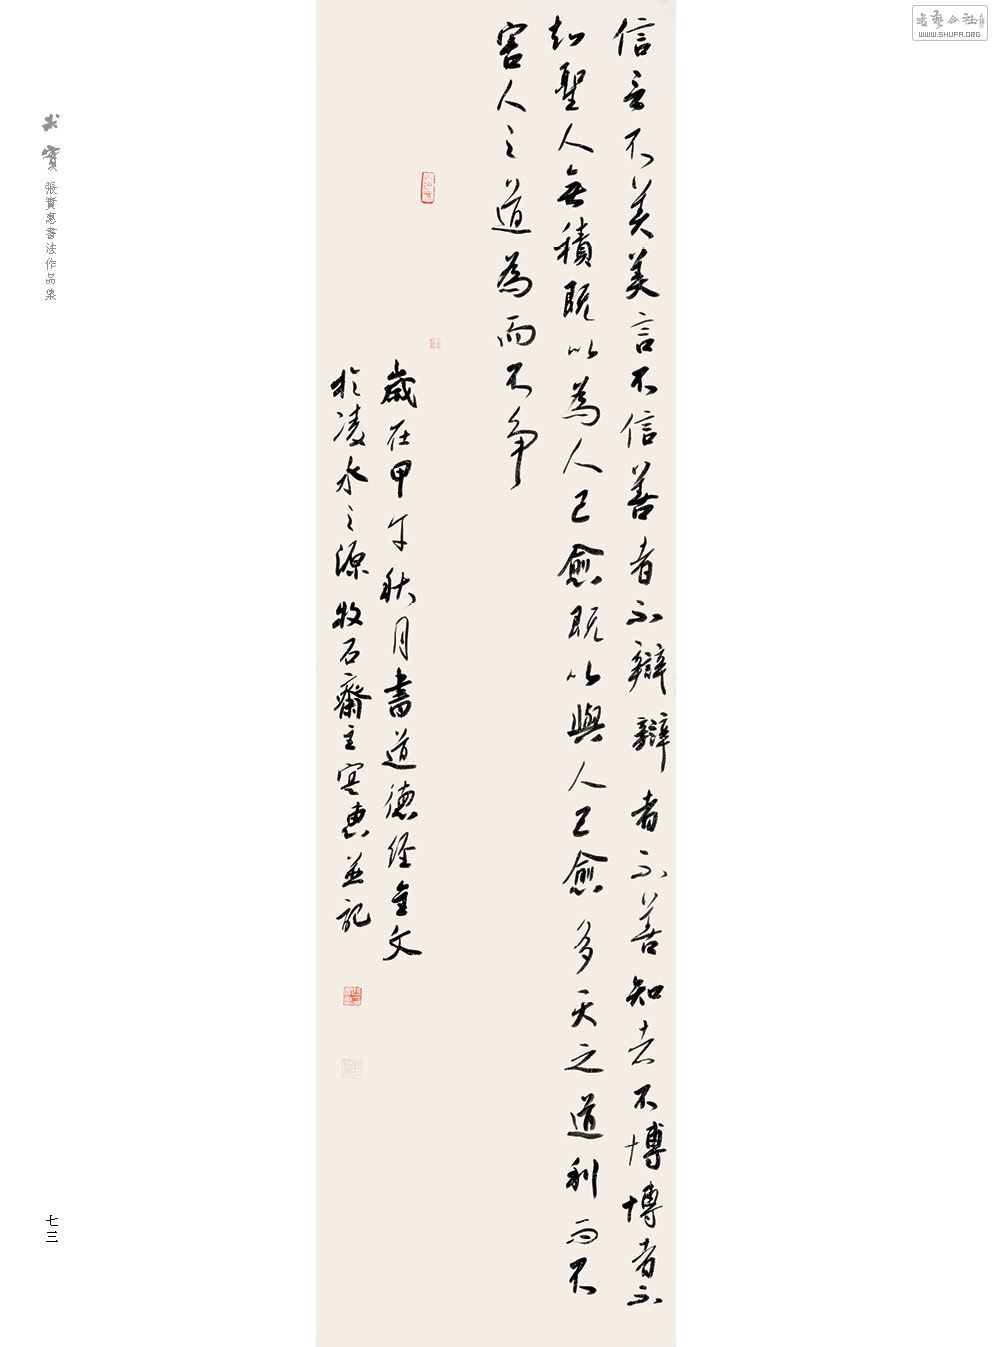 信言不美美言不信善者不辯辯者不善知者不博博者不
知聖人無積既以為人己愈既以與人己愈多天之道利而不
害人之道為而不争
歲在甲午秋月書道德经全文
於凌水之源牧石齋主寔惠並記
求實
張實惠書法作品集
七三
書藝公社
WWW.SHUFA.ORG